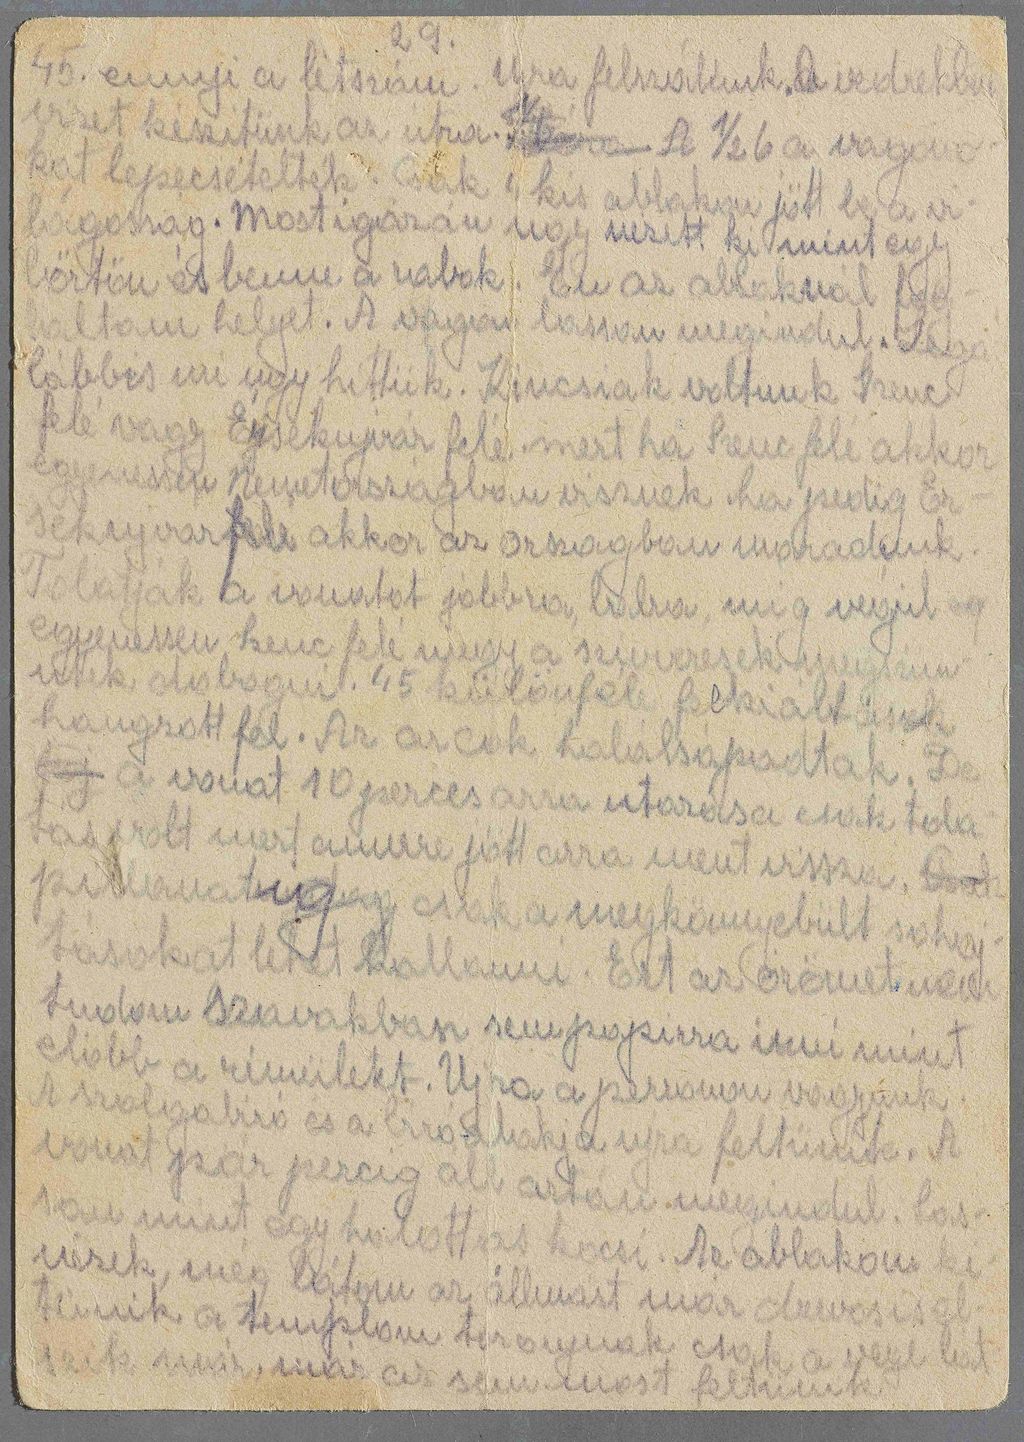 29.
45. ennyi a létszám. Ujra felszálltunk. A vedrekben
vizet készitünk az utra. A 1/2 6 a vagono-
kat lepecsételték. Csak 4 kis ablakon jött be a vi-
lágosság. Most igázán ugy nézett ki mint egy
börtön és benne a rabok. Én az ablaknál fog-
laltam helyet. A vagon lassan megindul.
lábbis mi ugy hittük. Kincsiak voltunk Szenc
felé vagy Érsekujvár felé. mert ha Szenc felé akkor
egyenessen Németországban visznek ha pedig Ér-
sekujvar felé akkor az országban maradunk.
Tolatják a vonatot jobbra, balra, mig végül
egyenessen Szenc felé megy a szivverések megszün-
tek dobogni. 45 különféle felkiáltások
hangzott fel. Az arcok halálsápadtak. De
a vonat 10 perces arra utazása csak tola-
tás volt mert amerre jött arra ment vissza.
pillanatig csak a megkönnyebült sohaj-
tásokat lehet hallanni. Ezt az örömet nem
tudom szavakban sem papirra irni mint
elöbb a rémületet. Ujra a peronon vagyunk.
A szolgabiró és a biró alakja ujra feltünik. A
vonat pár percig áll aztán megindul. Las-
san mint egy halottas kocsi. Az ablakon ki-
nézek, még látom az állmást már de
tünik a templom toronynak csak a vége lát
szik már, már az sem most feltünik